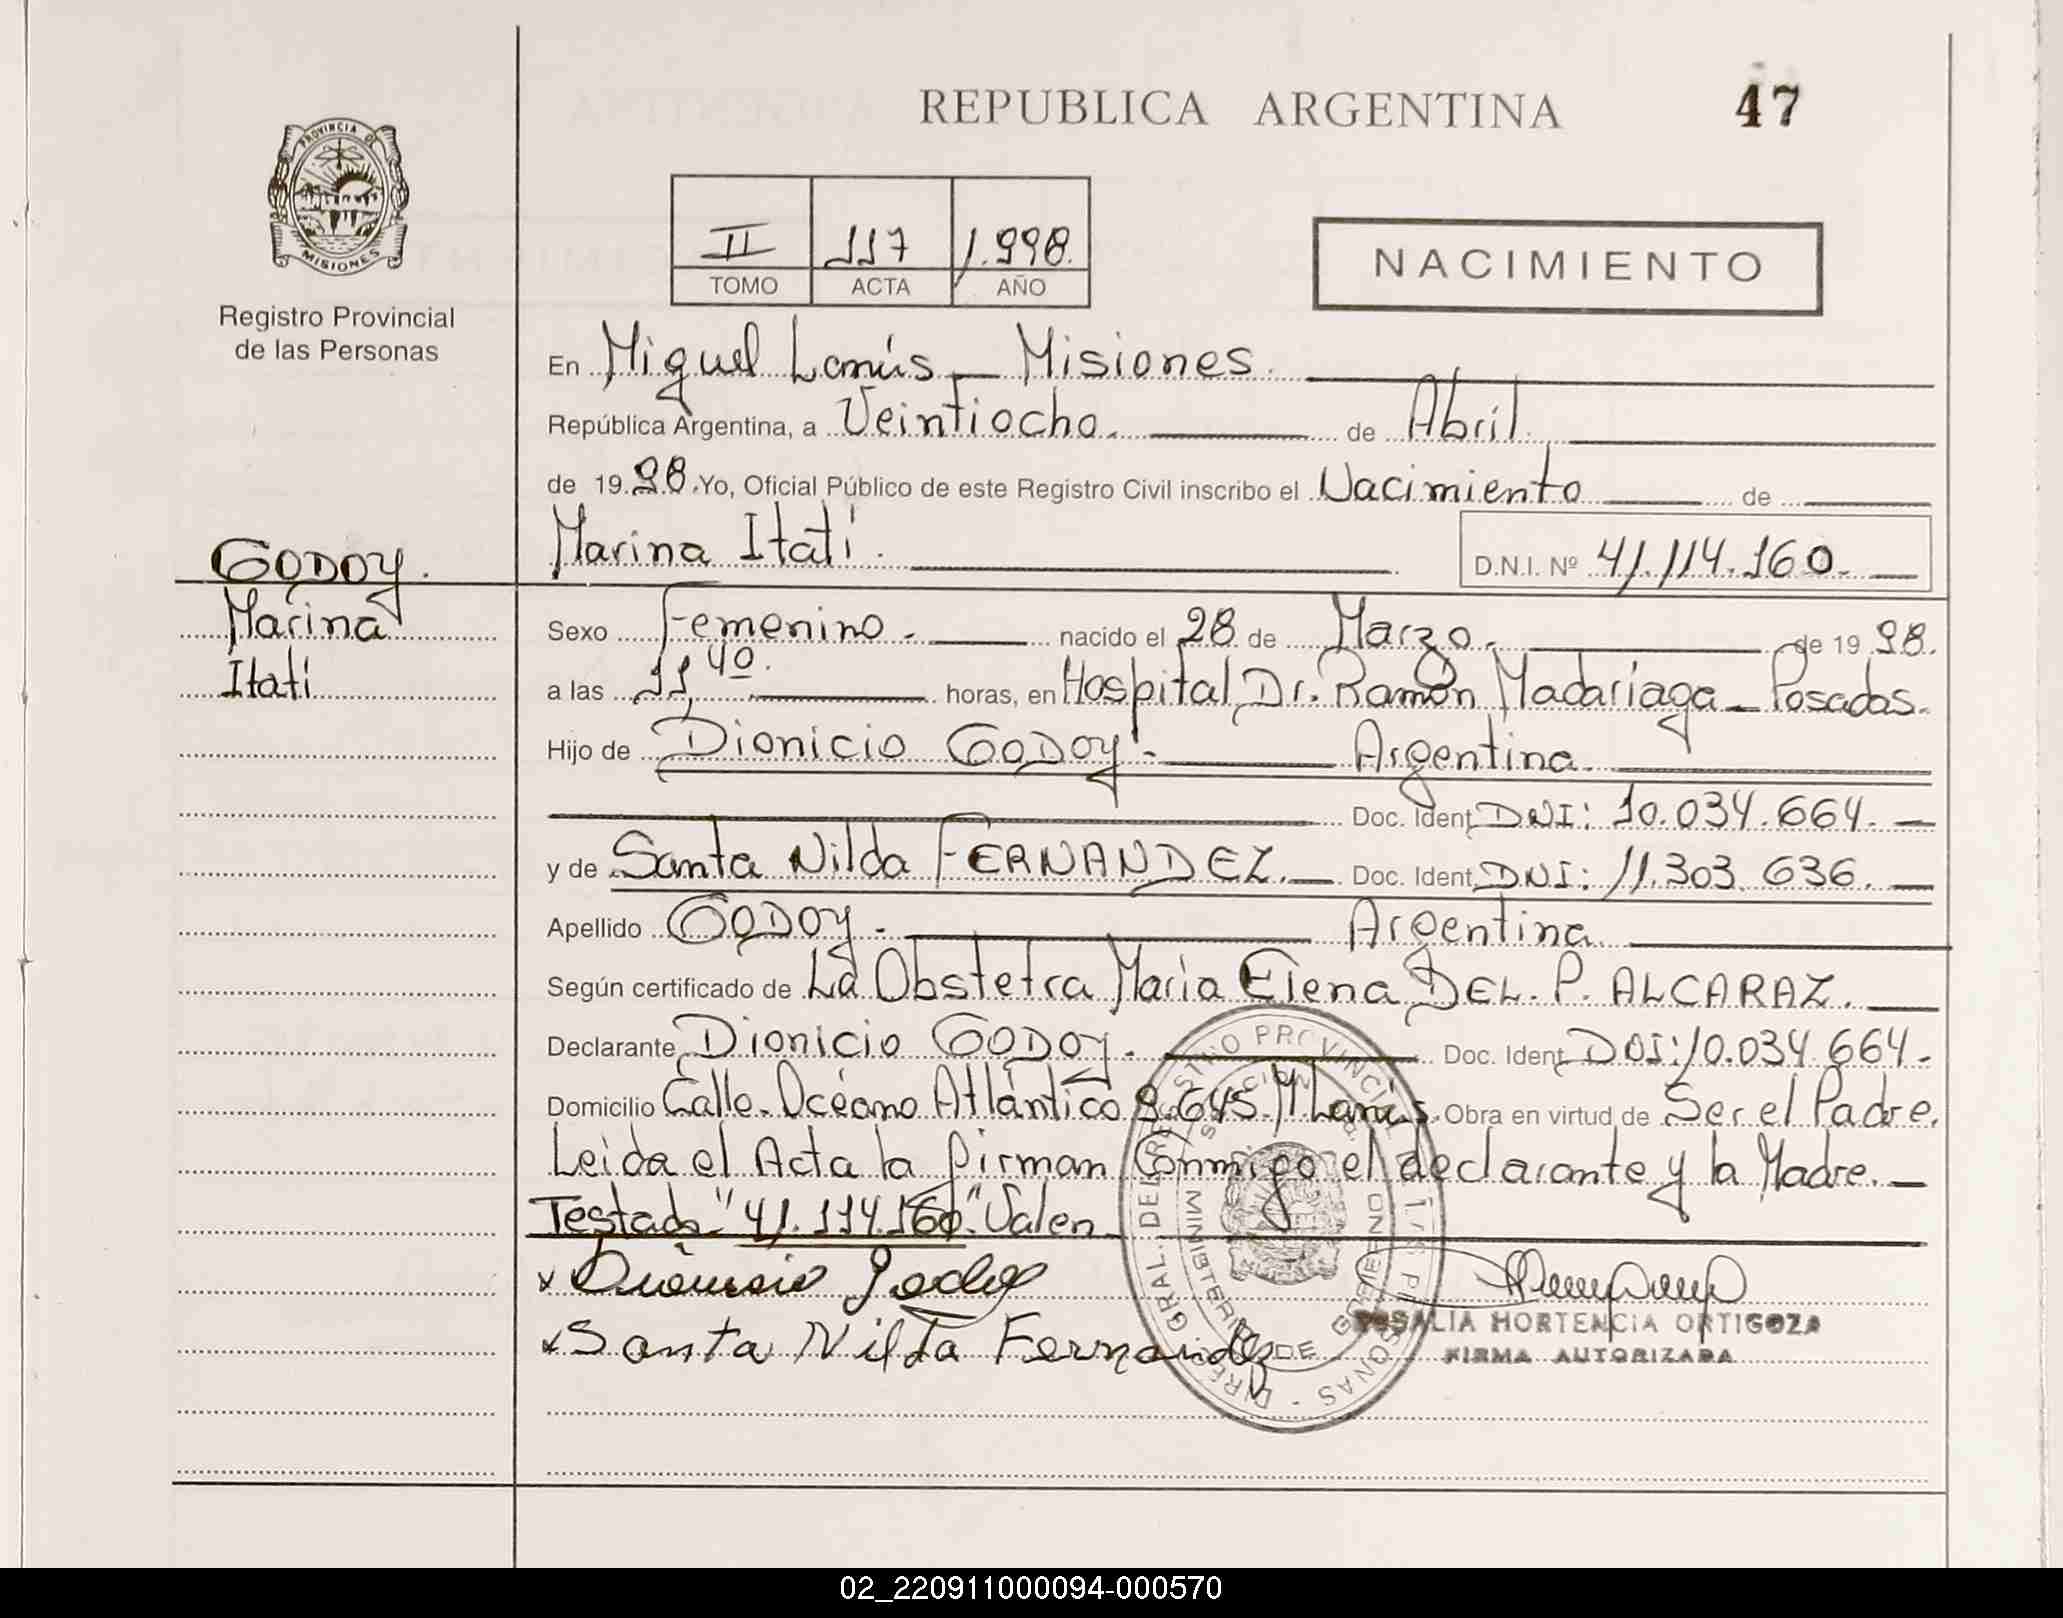 REPUBLICA ARGENTINA
47
PROVINCIA DE
MISIONES
Registro Provincial
de las Personas
II 117 1.998.
TOMO ACTA AÑO
NACIMIENTO
En Miguel Lanús - Misiones.
República Argentina, a Veintiocho. de Abril
de 19 98. Yo, Oficial Público de este Registro Civil inscribo el Nacimiento de
Marina Itatí. D.N.I. Nº 41.114.160.
GODOY.
Marina
Itatí
Sexo Femenino. nacido el 28 de Marzo. de 19 98.
a las 11,40. horas, en Hospital Dr. Ramón Madariaga - Posadas.
Hijo de Dionicio GODOY. Argentina.
Doc. Ident. DNI: 10.034.664.
y de Santa Nilda FERNANDEZ. Doc. Ident. DNI: 11.303.636.
Apellido GODOY. Argentina
Según certificado de La Obstetra Maria Elena DEL. P. ALCARAZ.
Declarante Dionicio GODOY. Doc. Ident. DNI: 10.034.664.
Domicilio Calle. Océano Atlántico 9.645. M Lanús. Obra en virtud de Ser el Padre.
Leida el Acta la firman Conmigo el declarante y la Madre.
Testado "41.114.160." Valen
x Dionicio Godoy
x Santa Nilda Fernandez
ROSALIA HORTENCIA ORTIGOZA
FIRMA AUTORIZADA
02_220911000094-000570